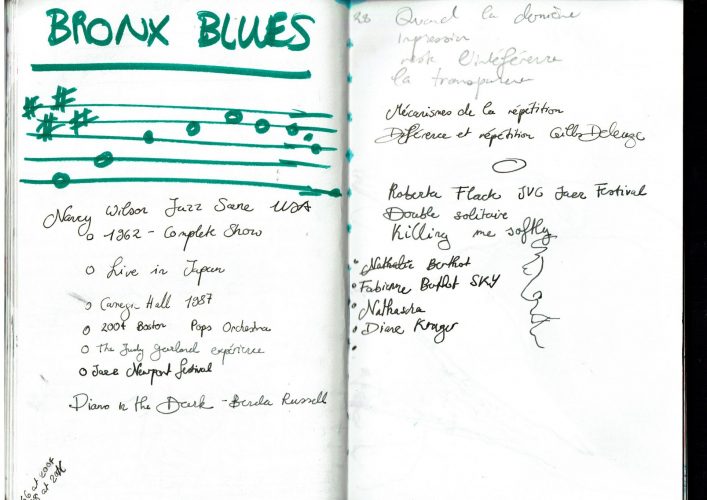 BRONX BLUES
Nancy Wilson Jazz Scene USA
1962 - Complete Show
Live in Japan
Carnegie Hall 1987
2004 Boston Pops Orchestra
The Judy Garland expérience
Jazz Newport festival
in the Dark - Russell
Quand la dernière
Impression
reste l'interférence
la
Mécanismes de la répétition
Différence et répétition Gilles Deleuze
Roberta Flack JVC Jazz Festival
Double solitaire
Killing me softly
Nathalie Berthot
Fabienne Berthot SKY
Nathascha
Diane Kruger